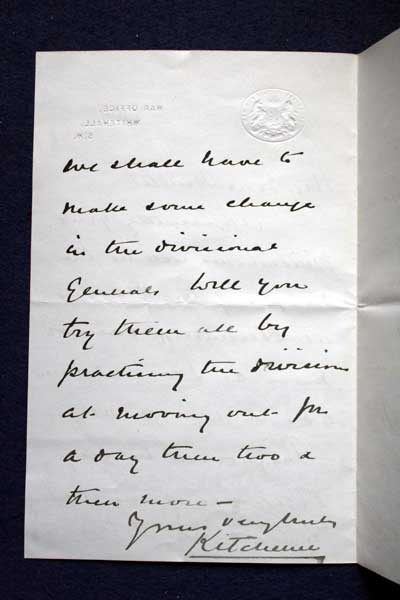 WAR OFFICE,
WHITEHALL,
S.W.
We shall have to
make some change
in the divisional
Generals Will you
try them all by
practising the divisions
at moving out for
a day then two &
then more –
Yours very truly
Kitchener